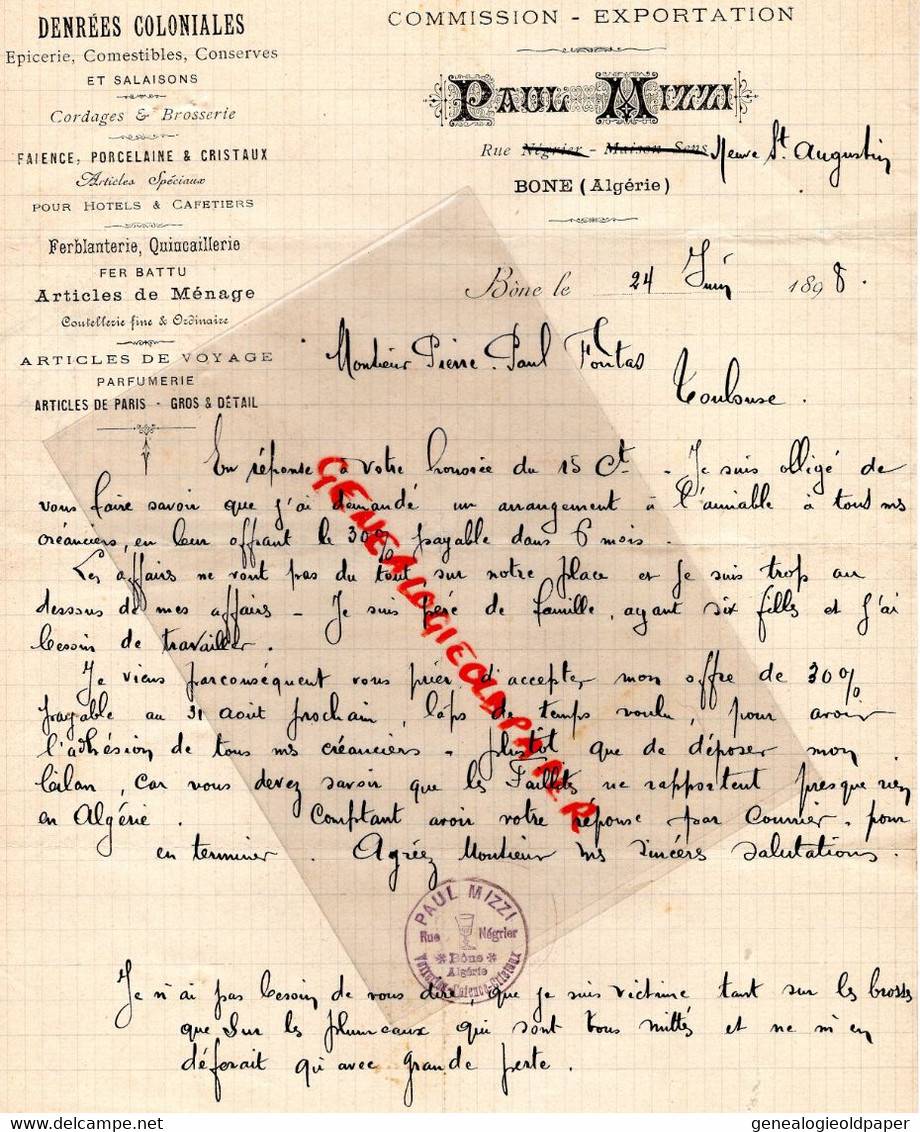 DENRÉES COLONIALES
Epicerie, Comestibles, Conserves
ET SALAISONS
Cordages & Brosserie
FAIENCE, PORCELAINE & CRISTAUX
Articles Spéciaux
POUR HOTELS & CAFETIERS
Ferblanterie, Quincaillerie
FER BATTU
Articles de Ménage
Coutellerie fine & Ordinaire
ARTICLES DE VOYAGE
PARFUMERIE
ARTICLES DE PARIS - GROS & DÉTAIL
COMMISSION - EXPORTATION
PAUL MIZZI
Rue Négrier - Maison Sens Neuve St Augustin
BONE (Algérie)
Bône le 24 Juin 1898.
Monsieur Pierre-Paul Fontas
Toulouse.
En réponse à votre honorée du 15 Ct - Je suis obligé de
vous faire savoir que j'ai demandé un arrangement à l'amiable à tous mes
créanciers, en leur offrant le 30% payable dans 6 mois.
Les affaires ne vont pas du tout sur notre place et je suis trop au
dessous de mes affaires - Je suis père de famille, ayant six filles et j'ai
besoin de travailler.
Je viens parconséquent vous prier, d'accepter mon offre de 30%
payable au 31 août prochain, laps de temps voulu, pour avoir
l'adhésion de tous mes créanciers - plustôt que de déposer mon
bilan, car vous devez savoir que les Faillites ne rapportent presque rien
en Algérie. Comptant avoir votre réponse par Courrier, pour
en terminer. Agréez Monsieur mes sincères salutations.
PAUL MIZZI
Rue Négrier
* Bône *
Algérie
Verreries-Faïence-Cristaux
Je n'ai pas besoin de vous dire, que je suis victime tant sur les brosses
que sur les plumeaux qui sont tous mittés et ne m'en
déferait qu'avec grande perte.
GENEALOGIEOLDPAPER
genealogieoldpaper